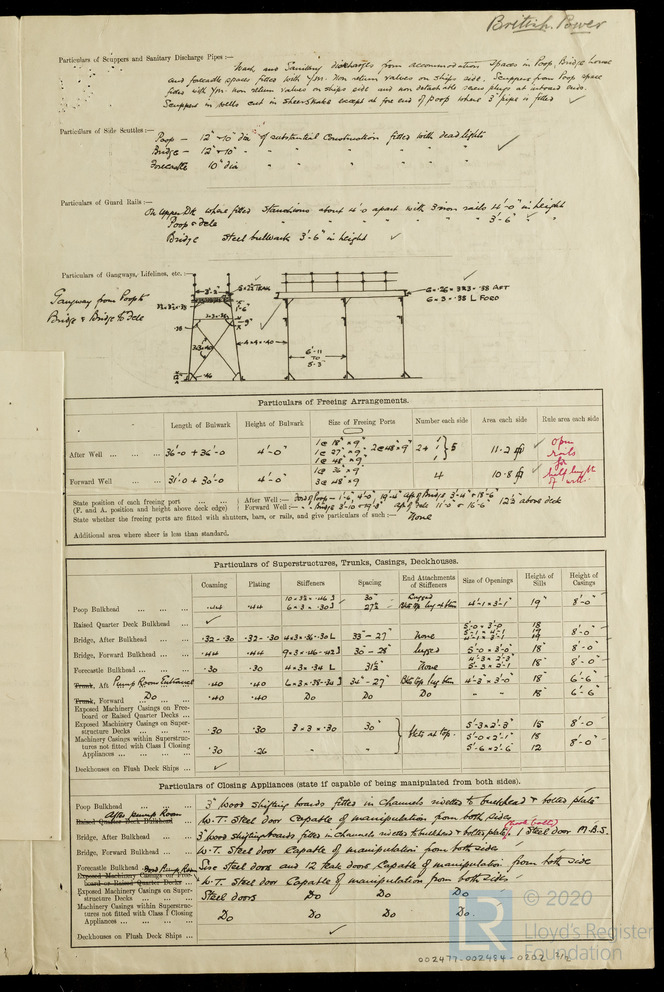 British Power
Particulars of Scuppers and Sanitary Discharge Pipes :—
Wash and Sanitary discharges from accommodation spaces in Poop, Bridge house
and forecastle spaces fitted with non return valves on ships side. Scuppers from Poop space
fitted with non return valves on ships side and non detachable screw plugs at inboard ends.
Scuppers in wells cut in sheerstrake except at for end of poop where 3" pipe is fitted
Particulars of Side Scuttles :—
Poop — 12" & 10" dia of substantial Construction fitted with deadlights
Bridge — 12" & 10" " " " " "
Forecastle 10" dia " " " "
Particulars of Guard Rails :—
On Upper Dk where fitted Stanchions about 4'-0 apart with 3 iron rails 4'-0" in height
Poop & " " " 3'-6" " "
Bridge Steel bulwark 3'-6" in height
Particulars of Gangways, Lifelines, etc. :—
Gangway from Poop to
Bridge & Bridge to
6'-11
TO
5'-3"
Particulars of Freeing Arrangements.
Length of Bulwark Height of Bulwark Size of Freeing Ports Number each side Area each side Rule area each side
After Well ... ... ... 36'-0 + 36'-0 4'-0" 1 @ 18" x 9" 1 @ 27" x 9" 1 @ 48" x 9" 2 @ 48" x 9" 5 11.2
Forward Well ... ... 31'-0 + 30'-0 4'-0" 1 @ 36" x 9" 3 @ 48" x 9" 4 10.8
open
rails
for
half length
of well
State position of each freeing port ... ... ...
(F. and A. position and height above deck edge)
After Well :— 12½" above deck
Forward Well :—
State whether the freeing ports are fitted with shutters, bars, or rails, and give particulars of such :— None
Additional area where sheer is less than standard.
Particulars of Superstructures, Trunks, Casings, Deckhouses.
Coaming Plating Stiffeners Spacing End Attachments of Stiffeners Size of Openings Height of Sills Height of Casings
Poop Bulkhead ... ... ... .44 .44 30" 27½" Lugged 4'-1 x 3'-1" 19" 8'-0"
Raised Quarter Deck Bulkhead ...
Bridge, After Bulkhead ... ... .32-.30 .32-.30 4 x 3 x .36-.30 L 33"-27" None 5'-0 x 3'-0 18 8'-0"
Bridge, Forward Bulkhead ... .44 .44 9 x 3 x .46-.42 30"-28" lugged 5'-0 x 3'-0" 18" 8'-0"
Forecastle Bulkhead ... ... .30 .30 4 x 3 x .34 L 31½" None 4'-3 x 2'-3" 5'-3 x 2'-1 18" 8'-0"
Trunk, Aft Pump Room Entrance .40 .40 6 x 3 x .38-.34 32"-27" 4'-3" x 3'-0" 18" 6'-6"
Trunk, Forward Do .40 .40 Do Do Do " " 18" 6'-6"
Exposed Machinery Casings on Free-
board or Raised Quarter Decks ...
Exposed Machinery Casings on Super-
structure Decks ... ... ... .30 .30 3 x 3 x .30 30" Bkts at top. 5'-3 x 2'-3" 5'-0 x 2'-1" 18 18 8'-0
Machinery Casings within Superstruc-
tures not fitted with Class I Closing
Appliances ... ... ... .30 .26 " " 5'-6 x 2'-6 12 8'-0"
Deckhouses on Flush Deck Ships ...
Particulars of Closing Appliances (state if capable of being manipulated from both sides).
Poop Bulkhead ... ... ... 3" wood shifting boards fitted in channels rivetted to bulkhead & bolted plate
After pump Room
Raised Quarter Deck Bulkhead W.T. Steel door Capable of manipulation from both sides
Bridge, After Bulkhead ... ... 3" wood shifting boards fitted in channels rivetted to bulkhead & bolted plate 1 Steel door M.B.S.
Bridge, Forward Bulkhead ... W.T. Steel door Capable of manipulation from both sides
Forecastle Bulkhead steel doors and 12 teak doors Capable of manipulation from both side
Ford Pump Room
Exposed Machinery Casings on Free-
board or Raised Quarter Decks ... W.T. Steel door Capable of manipulation from both sides
Exposed Machinery Casings on Super-
structure Decks ... ... ... Steel doors Do Do Do
Machinery Casings within Superstruc-
tures not fitted with Class I Closing
Appliances ... ... ... Do Do Do Do.
Deckhouses on Flush Deck Ships ...
LR
© 2020
Lloyd's Register
Foundation
002477-002484-0202 2/2